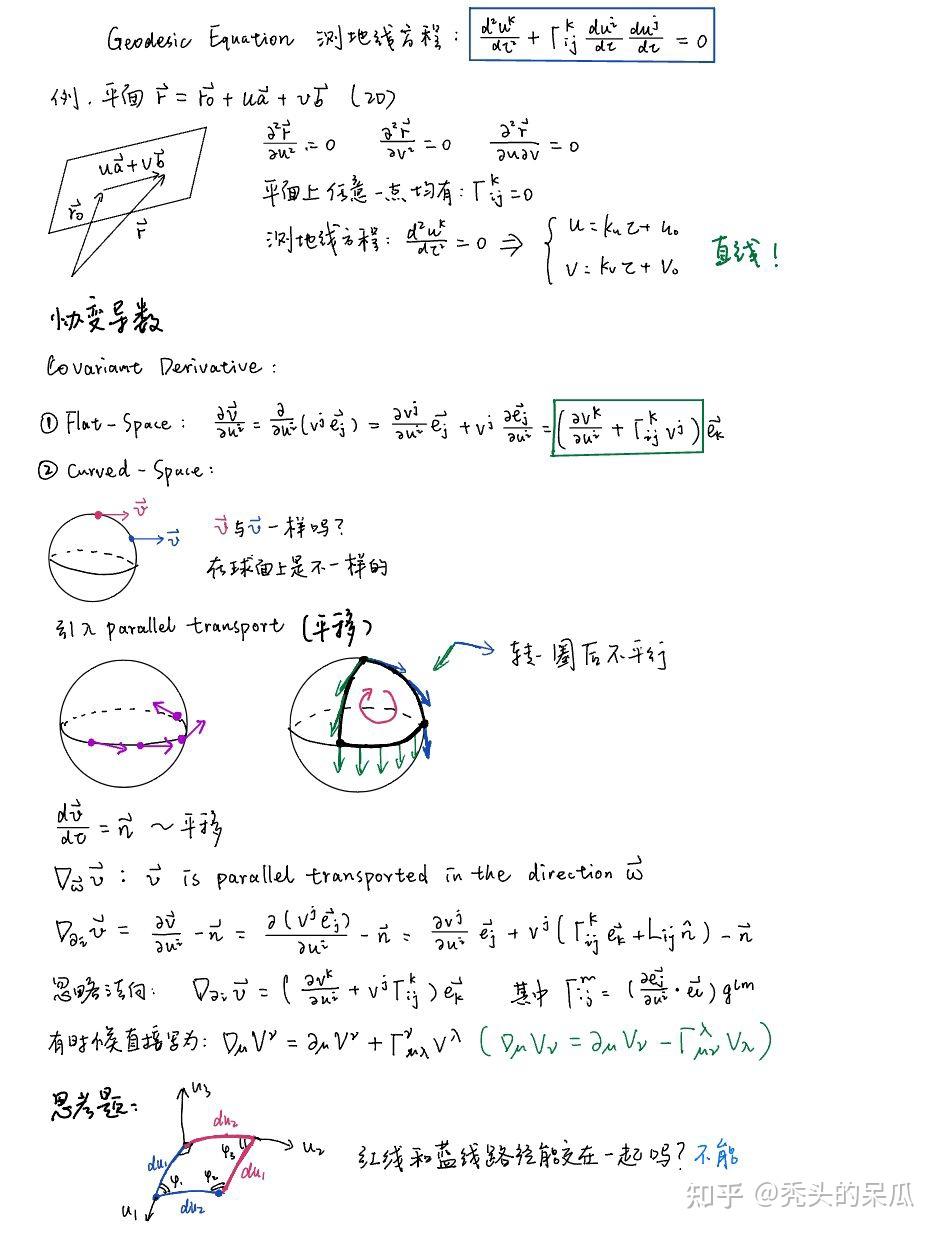 Geodesic Equation 测地线方程: d²uᵏ/dτ² + Γᵏᵢⱼ duⁱ/dτ duʲ/dτ = 0
例. 平面 r⃗ = r⃗₀ + ua⃗ + vb⃗ (2D)
ua⃗ + vb⃗
r⃗₀
r⃗
∂²r⃗/∂u² = 0 ∂²r⃗/∂v² = 0 ∂²r⃗/∂u∂v = 0
平面上任意一点均有: Γᵏᵢⱼ = 0
测地线方程: d²uᵏ/dτ² = 0 ⇒ { u = kᵤτ + u₀
v = kᵥτ + v₀
直线!
协变导数
Covariant Derivative:
① Flat-Space: ∂v⃗/∂uⁱ = ∂/∂uⁱ (vʲe⃗ⱼ) = ∂vʲ/∂uⁱ e⃗ⱼ + vʲ ∂e⃗ⱼ/∂uⁱ = (∂vᵏ/∂uⁱ + Γᵏᵢⱼ vʲ) e⃗ₖ
② Curved-Space:
v⃗
v⃗
v⃗与v⃗一样吗?
在球面上是不一样的
引入 parallel transport (平移)
转一圈后不平行
dv⃗/dτ = n⃗ ~ 平移
∇w⃗ v⃗ : v⃗ is parallel transported in the direction w⃗
∇∂ᵢ v⃗ = ∂v⃗/∂uⁱ - n⃗ = ∂(vʲe⃗ⱼ)/∂uⁱ - n⃗ = ∂vʲ/∂uⁱ e⃗ⱼ + vʲ(Γᵏᵢⱼ e⃗ₖ + Lᵢⱼ n̂) - n⃗
忽略法向: ∇∂ᵢ v⃗ = (∂vᵏ/∂uⁱ + vʲΓᵏᵢⱼ) e⃗ₖ 其中 Γᵐᵢⱼ = (∂e⃗ⱼ/∂uⁱ · e⃗ₗ) gˡᵐ
有时候直接写为: ∇μVᵛ = ∂μVᵛ + Γᵛμλ V^λ (∇μVν = ∂μVν - Γ^λμν Vλ)
思考题:
u₃
du₂
u₂
du₁
φ₃
φ₁
φ₂
du₁
du₂
u₁
红线和蓝线路径能交在一起吗? 不能
知乎 @秃头的呆瓜